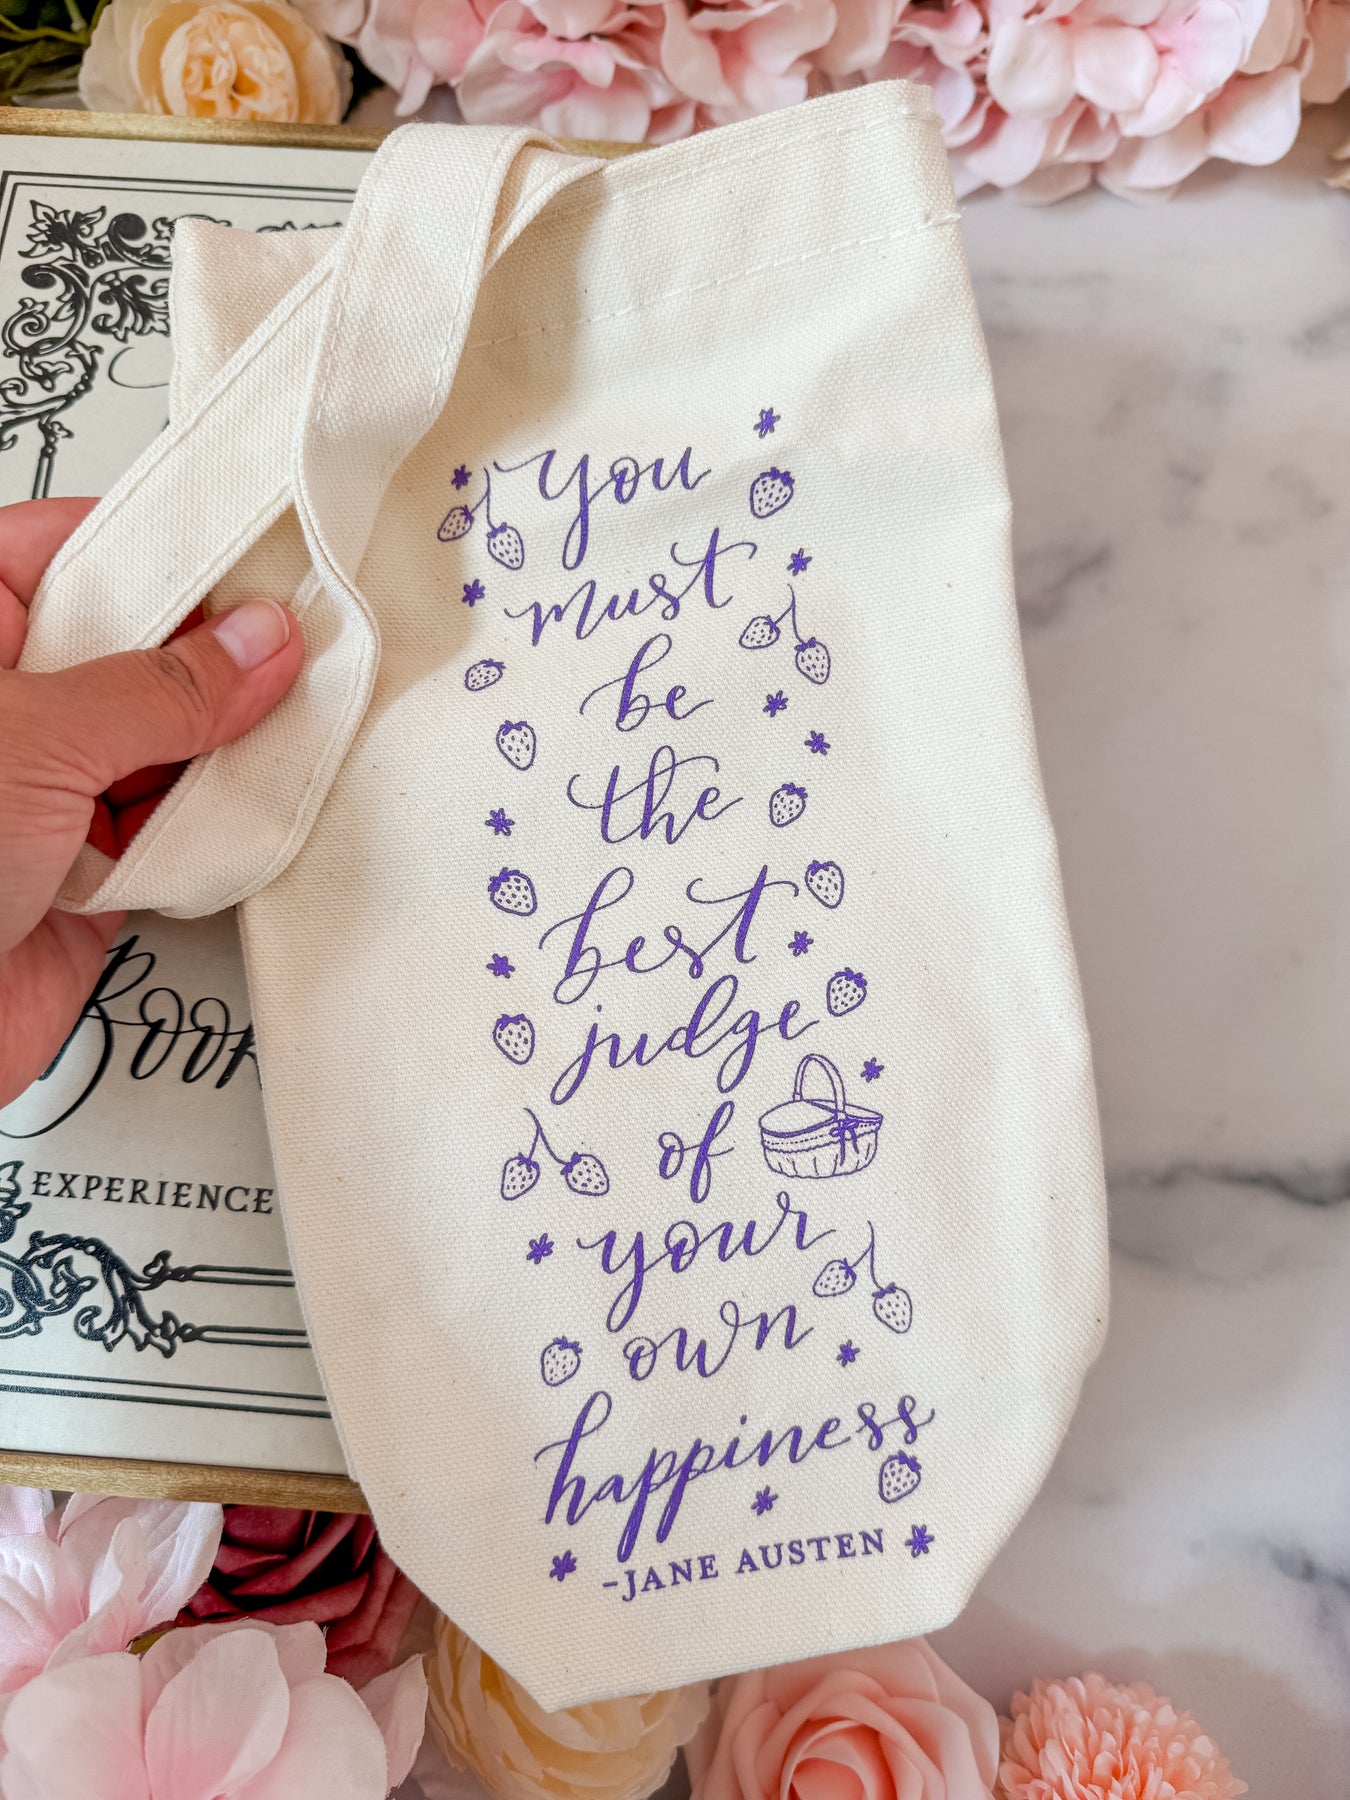 you
must
be
the
best
judge
of
your
own
happiness
-JANE AUSTEN
EXPERIENCE